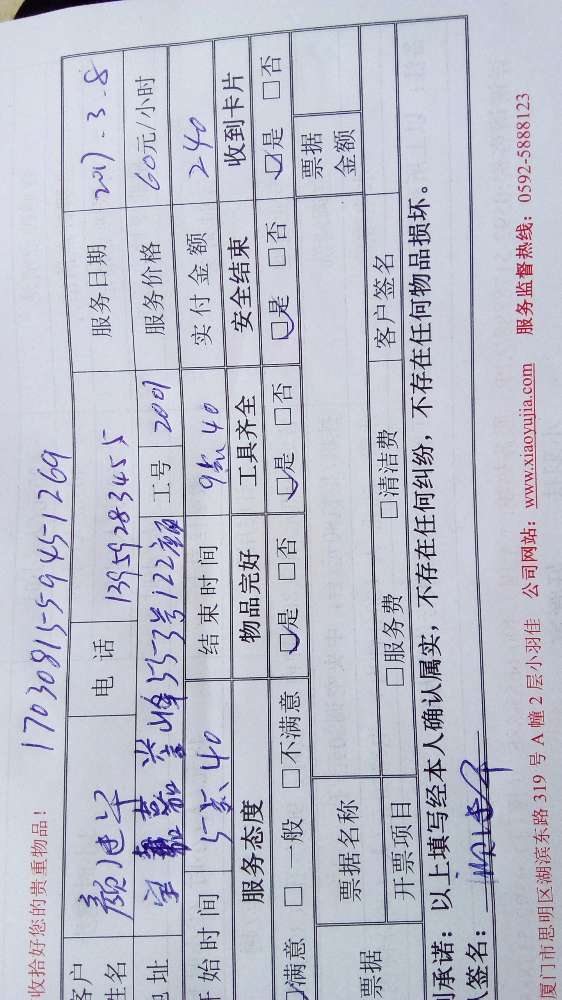 收拾好您的贵重物品！ 17030815-5945-1269
客户姓名 颜建军 电话 13959283455 服务日期 2017.3.8
地址 峰553号122 工号 2001 服务价格 60元/小时
开始时间 5点40 结束时间 9点40 实付金额 240
服务态度 物品完好 工具齐全 安全结束 收到卡片
☑满意 □一般 □不满意 ☑是 □否 ☑是 □否 ☑是 □否 ☑是 □否
票据 票据名称 票据金额
开票项目 □服务费 □清洁费 客户签名
承诺：以上填写经本人确认属实，不存在任何纠纷，不存在任何物品损坏。
签名：
厦门市思明区湖滨东路 319 号 A 幢 2 层小羽佳 公司网站：www.xiaoyujia.com 服务监督热线：0592-5888123